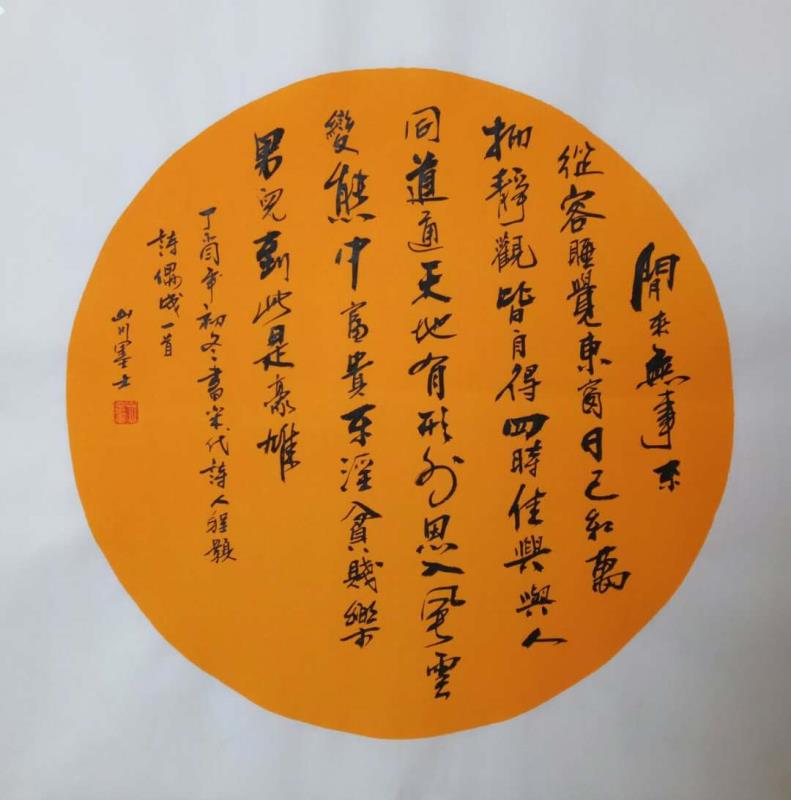 閒來無事不
從容睡覺東窗日已紅萬
物靜觀皆自得四時佳興與人
同道通天地有形外思入風雲
變態中富貴不淫貧賤樂
男兒到此是豪雄
丁酉年初冬書宋代詩人程顥
詩偶成一首
山川墨士